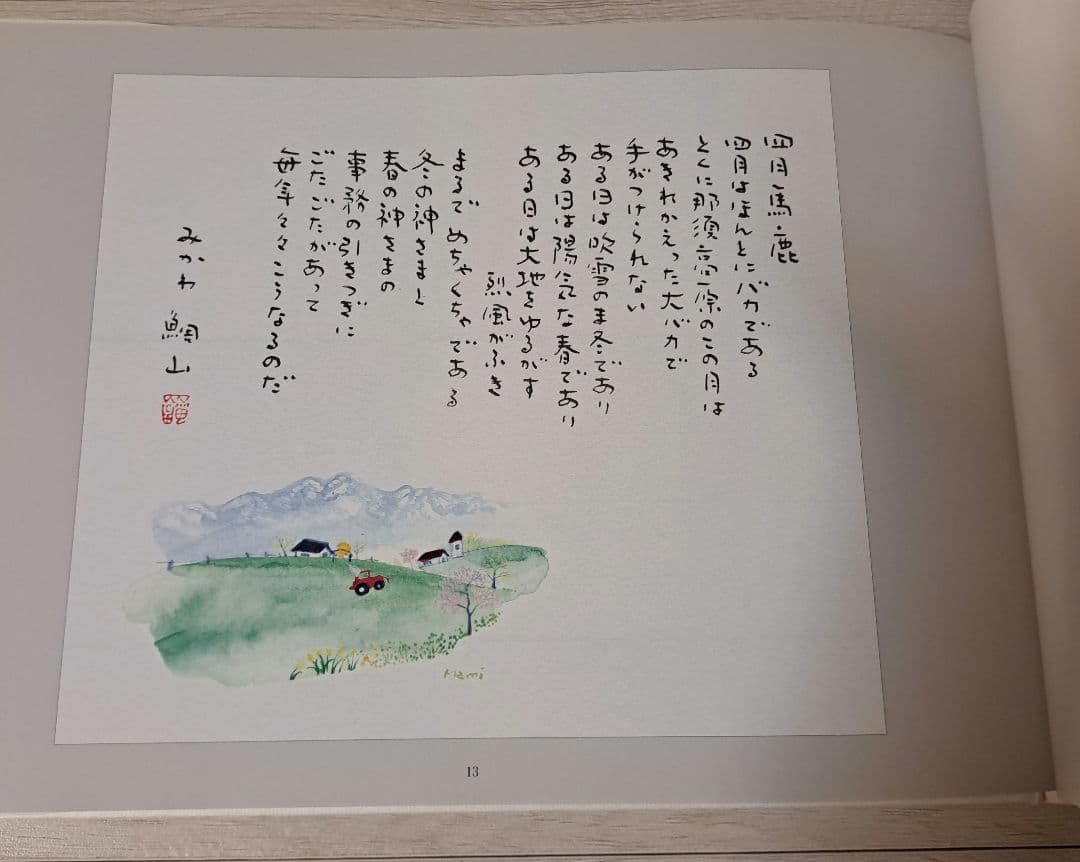 四月馬鹿
四月はほんとにバカである
とくに那須高原のこの月は
あきれかえった大バカで
手がつけられない
ある日は吹雪のま冬であり
ある日は陽気な春であり
ある日は大地をゆるがす
烈風がふき
まるでめちゃくちゃである
冬の神さまと
春の神さまの
事務の引きつぎに
ごたごたがあって
毎年々々こうなるのだ
みかわ鯛山
Mami
13